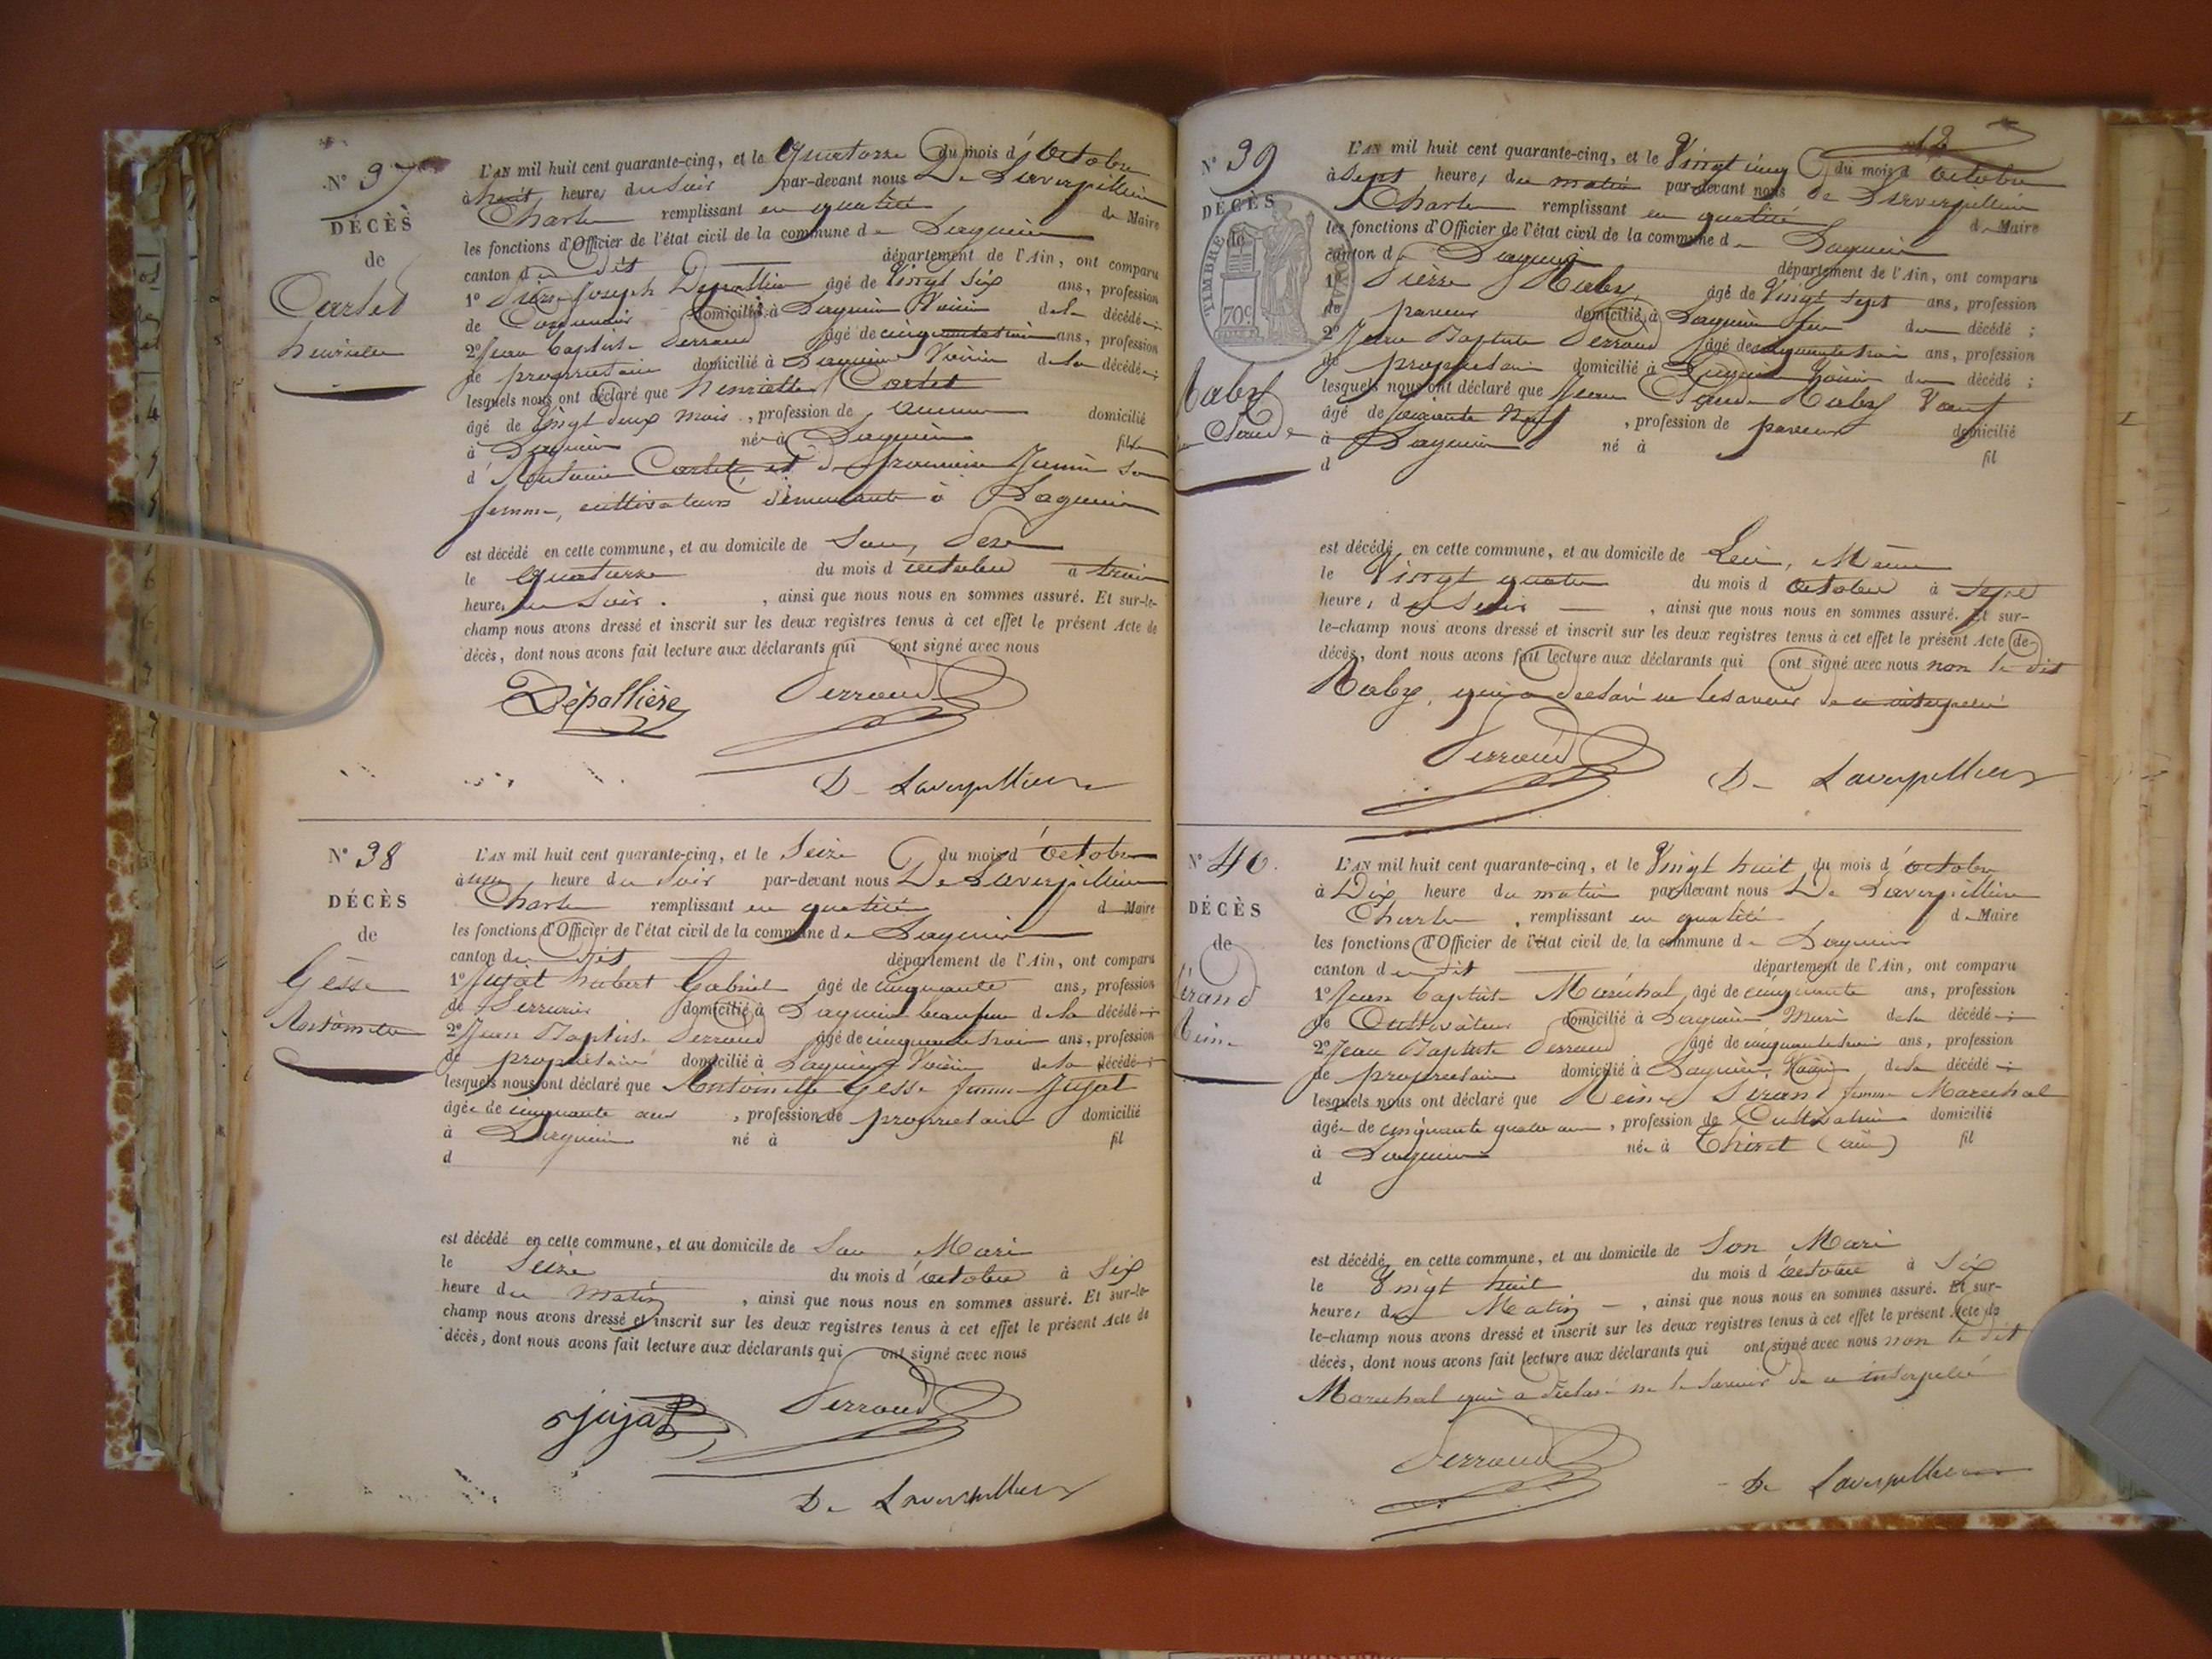 N° 37
DÉCÈS
de
Cartet
henriette
L'AN mil huit cent quarante-cinq, et le Quatorze du mois d'octobre
à huit heures du Soir par-devant nous De Laverpillière
Charles remplissant en qualité de Maire
les fonctions d'Officier de l'état civil de la commune de Lagnieu
canton du dit département de l'Ain, ont comparu
1° Pierre Joseph Depallière âgé de Vingt Six ans, profession
de domicilié à Lagnieu Voisin de la décédée ;
2° Jean baptiste Perraud âgé de cinquante trois ans, profession
de propriétaire domicilié à Lagnieu Voisin de la décédée ;
lesquels nous ont déclaré que henriette Cartet
âgé de Vingt deux mois, profession de aucune domicilié
à Lagnieu née à Lagnieu fille
d'Antoine Cartet et de sa
femme, cultivateurs demeurant à Lagnieu
est décédé en cette commune, et au domicile de Son Père
le Quatorze du mois d octobre à trois
heures du Soir. , ainsi que nous nous en sommes assuré. Et sur-le-
champ nous avons dressé et inscrit sur les deux registres tenus à cet effet le présent Acte de
décès, dont nous avons fait lecture aux déclarants qui ont signé avec nous
Dépallière Perraud
De Laverpillière
N° 38
DÉCÈS
de
Gesse
Antoinette
L'AN mil huit cent quarante-cinq, et le Seize du mois d'octobre
à une heure du Soir par-devant nous De Laverpillière
Charles remplissant en qualité de Maire
les fonctions d'Officier de l'état civil de la commune de Lagnieu
canton du dit département de l'Ain, ont comparu
1° Jujat hubert Gabriel âgé de cinquante ans, profession
de Serrurier domicilié à Lagnieu beaufrere de la décédée ;
2° Jean Baptiste Perraud âgé de cinquante trois ans, profession
de propriétaire domicilié à Lagnieu Voisin de la décédée ;
lesquels nous ont déclaré que Antoinette Gesse femme Jujat
âgée de cinquante ans , profession de propriétaire domicilié
à Lagnieu né à fil
d
est décédé en cette commune, et au domicile de Son Mari
le Seize du mois d'octobre à Six
heure du Matin , ainsi que nous nous en sommes assuré. Et sur-le-
champ nous avons dressé et inscrit sur les deux registres tenus à cet effet le présent Acte de
décès, dont nous avons fait lecture aux déclarants qui ont signé avec nous
Jujat Perraud
De Laverpillière
N° 39
DÉCÈS
de
TIMBRE
70c
Raby
Claude
L'AN mil huit cent quarante-cinq, et le Vingt cinq du mois d octobre
à Sept heures du matin par-devant nous De Laverpillière
Charles remplissant en qualité de Maire
les fonctions d'Officier de l'état civil de la commune de Lagnieu
canton d Lagnieu département de l'Ain, ont comparu
1° Pierre Raby âgé de Vingt Sept ans, profession
de paveur domicilié à Lagnieu fils du décédé ;
2° Jean Baptiste Perraud âgé de cinquante trois ans, profession
de propriétaire domicilié à Lagnieu Voisin du décédé ;
lesquels nous ont déclaré que Jean Claude Raby Veuf
âgé de soixante Neuf , profession de paveur domicilié
à Lagnieu né à fil
d
est décédé en cette commune, et au domicile de Lui, Même
le Vingt quatre du mois d octobre à Sept
heures du Soir , ainsi que nous nous en sommes assuré. Et sur-
le-champ nous avons dressé et inscrit sur les deux registres tenus à cet effet le présent Acte de
décès, dont nous avons fait lecture aux déclarants qui ont signé avec nous non le dit
Raby, qui a déclaré ne le savoir de ce interpellé
Perraud De Laverpillière
N° 40.
DÉCÈS
de
Sirand
Reine
L'AN mil huit cent quarante-cinq, et le Vingt huit du mois d'octobre
à Dix heure du matin par-devant nous De Laverpillière
Charles , remplissant en qualité de Maire
les fonctions d'Officier de l'état civil de la commune de Lagnieu
canton du dit département de l'Ain, ont comparu
1° Jean baptiste Maréchal, âgé de cinquante ans, profession
de Cultivateur domicilié à Lagnieu Mari de la décédée ;
2° Jean Baptiste Perraud âgé de cinquante trois ans, profession
de propriétaire domicilié à Lagnieu, Voisin de la décédée ;
lesquels nous ont déclaré que Reine Sirand femme Marechal
âgée de cinquante quatre ans, profession de Cultivatrice domicilié
à Lagnieu née à Thiret (ain) fil
d
est décédé en cette commune, et au domicile de Son Mari
le Vingt huit du mois d'octobre à Six
heures du Matin , ainsi que nous nous en sommes assuré. Et sur-
le-champ nous avons dressé et inscrit sur les deux registres tenus à cet effet le présent Acte de
décès, dont nous avons fait lecture aux déclarants qui ont signé avec nous non le dit
Marechal qui a déclaré ne le savoir de ce interpellé
Perraud De Laverpillière